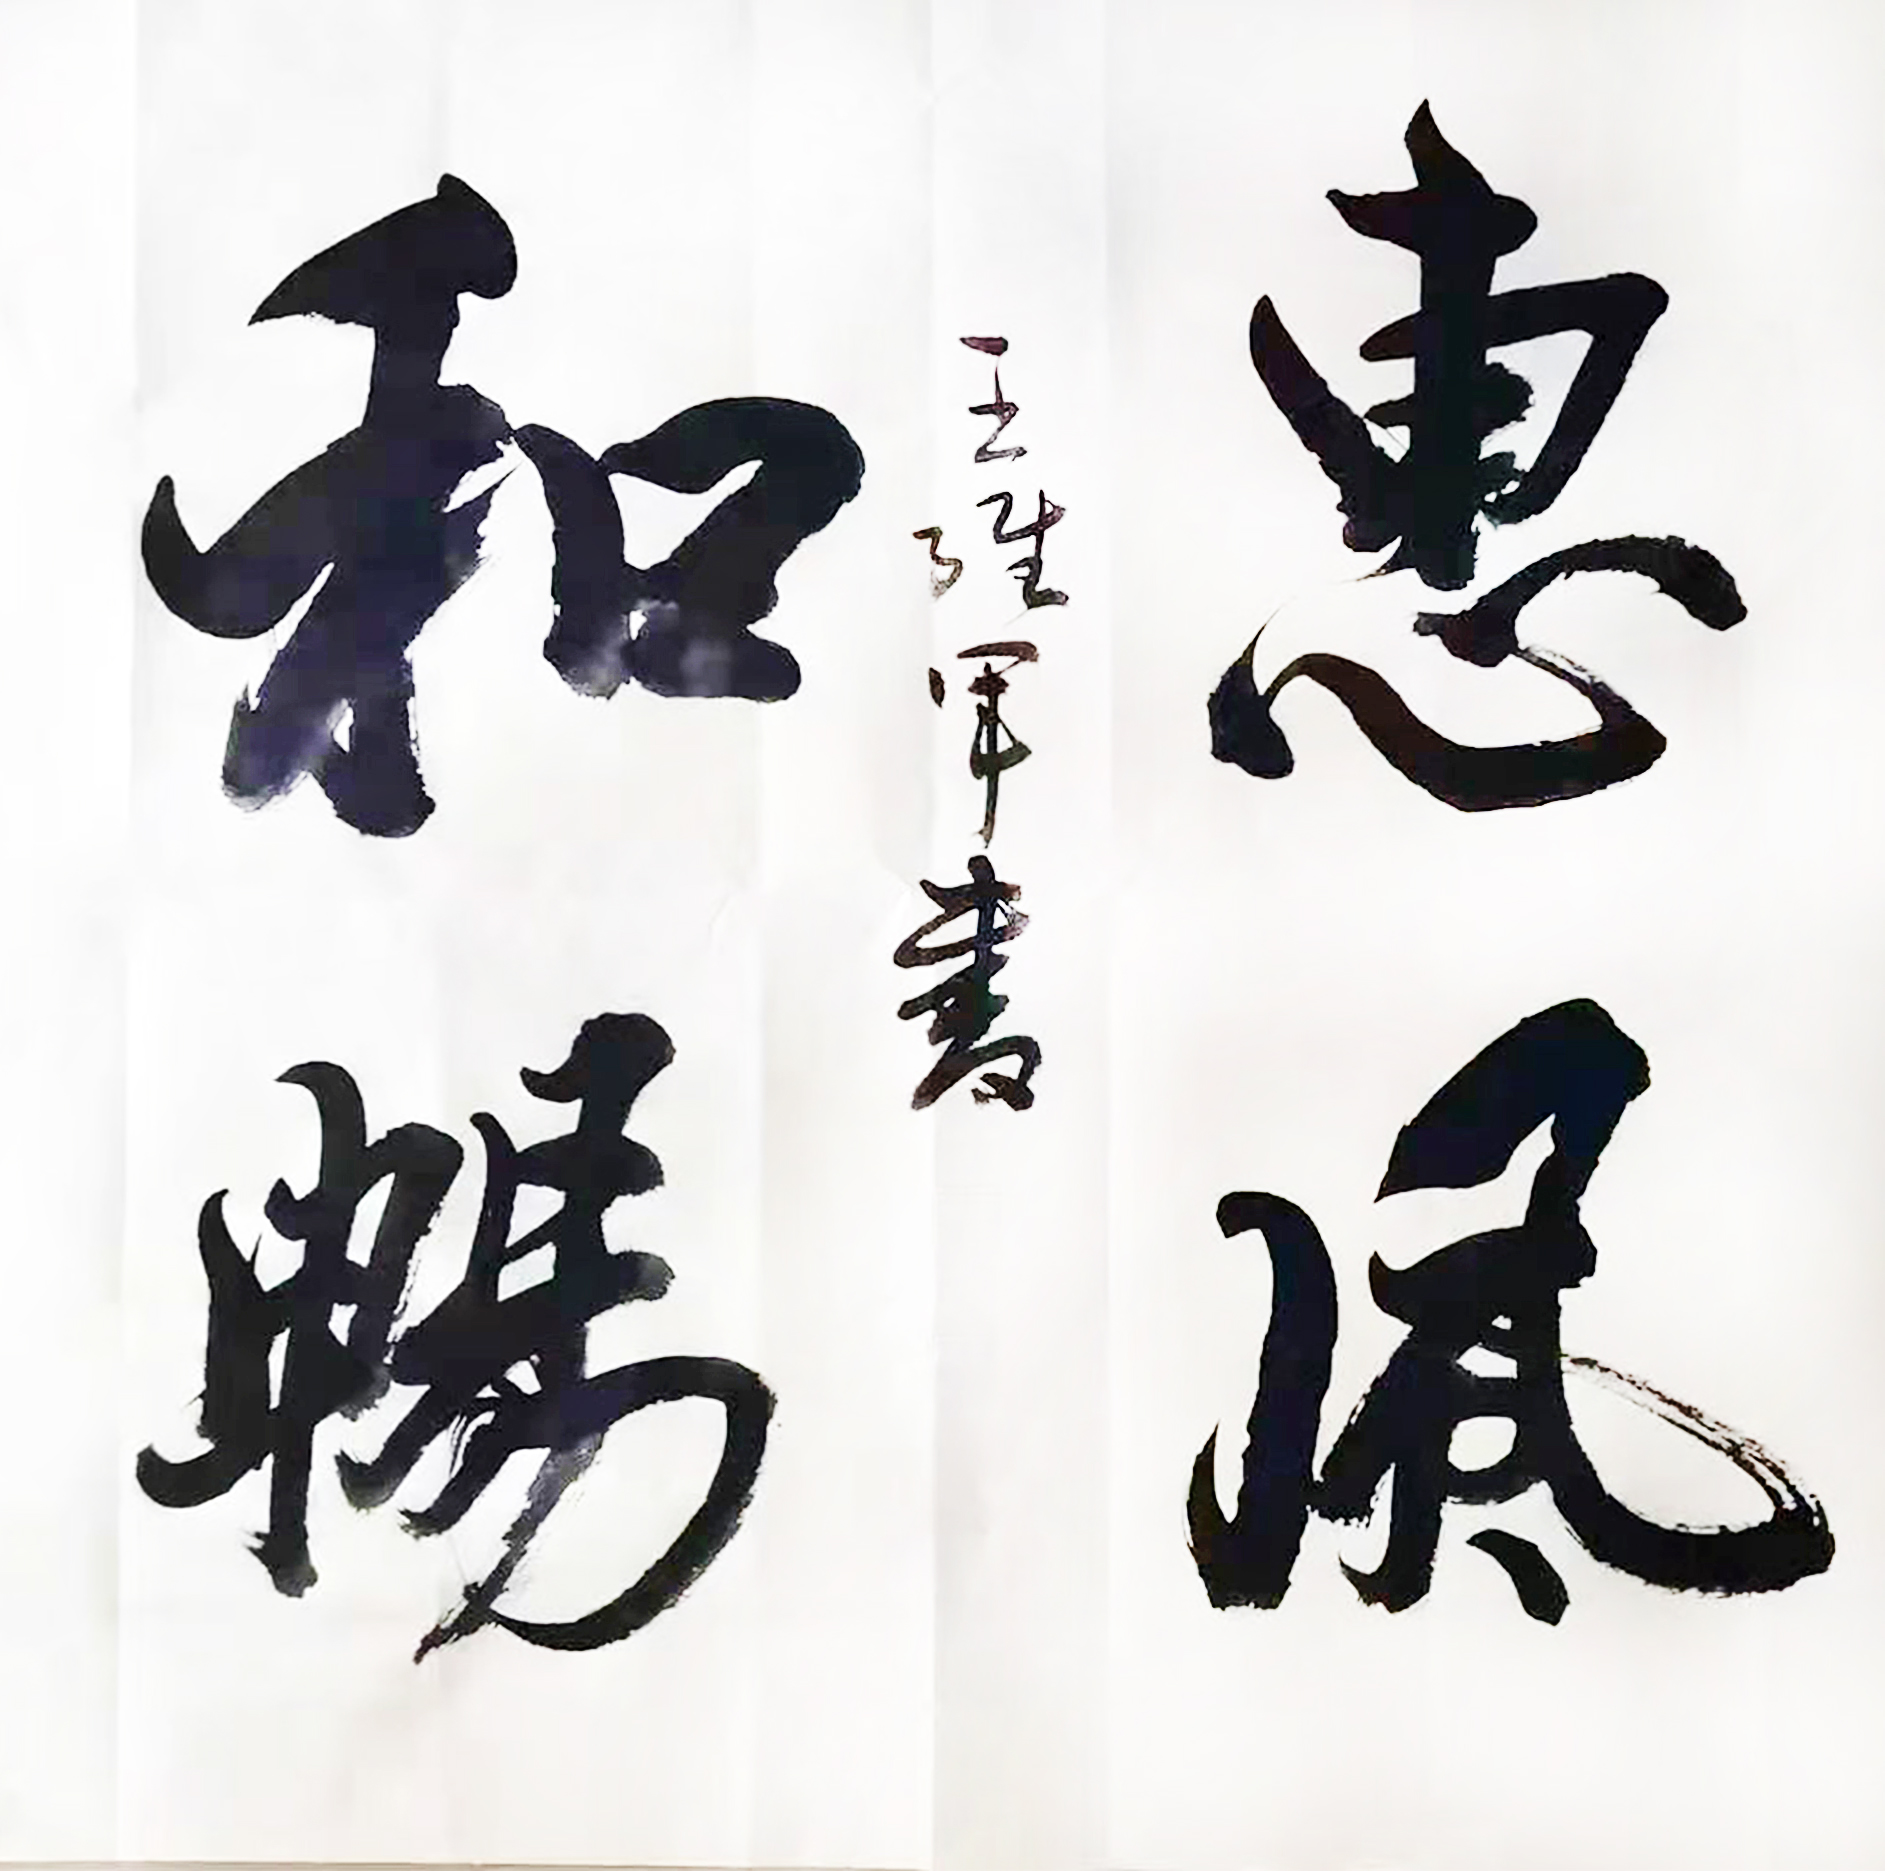 惠風
和暢
王维军書